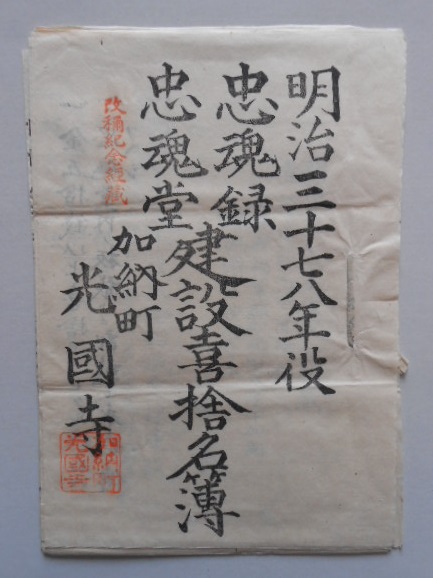 明治三十七八年役
忠魂録
忠魂堂
建設喜捨名簿
改稱紀念經藏
加納町
光國寺
加納町
光國寺